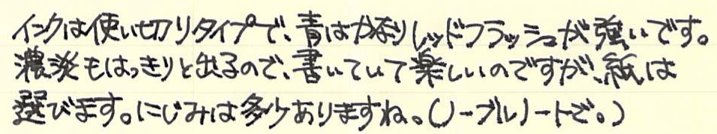 インクは使い切りタイプで、青はかなりレッドフラッシュが強いです。
濃淡もはっきりと出るので、書いていて楽しいのですが、紙は
選びます。にじみは多少ありますね。(ノーブルノートで。)